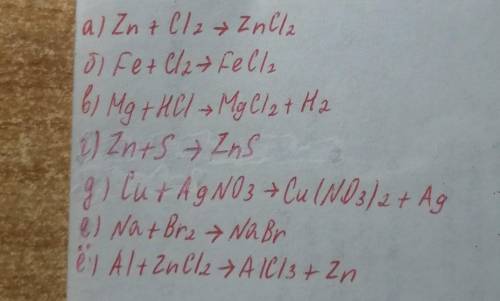 а) Zn + Cl2 → ZnCl2
б) Fe + Cl2 → FeCl2
в) Mg + HCl → MgCl2 + H2
г) Zn + S → ZnS
д) Cu + AgNO3 → Cu(NO3)2 + Ag
е) Na + Br2 → NaBr
ё) Al + ZnCl2 → AlCl3 + Zn